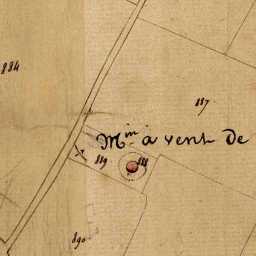 884
887
Mⁱⁿ a vent de
889
890